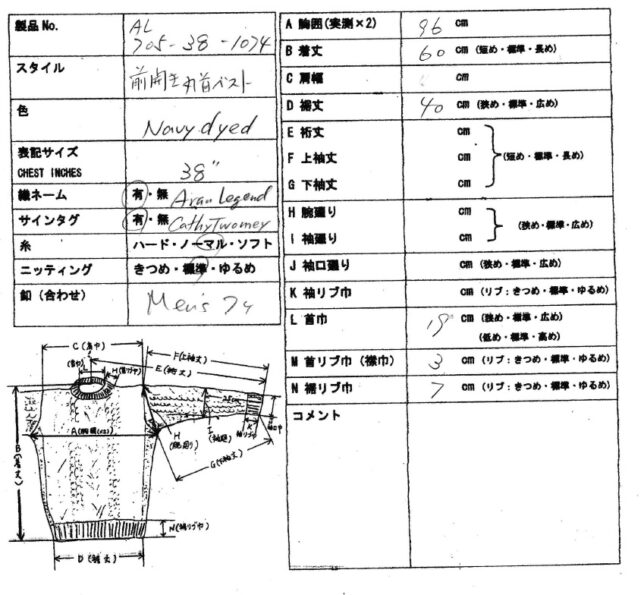 製品No.
AL
705-38-1074
スタイル
前開き丸首ベスト
色
Navy dyed
表記サイズ
CHEST INCHES
38"
織ネーム
有・無 Aran Legend
サインタグ
有・無 Cathy Twomey
糸
ハード・ノーマル・ソフト
ニッティング
きつめ・標準・ゆるめ
釦（合わせ）
Men's
A 胸囲(実測×2)
96 cm
B 着丈
60 cm (短め・標準・長め)
C 肩幅
cm
D 裾丈
40 cm (狭め・標準・広め)
E 裄丈
cm
F 上袖丈
cm (短め・標準・長め)
G 下袖丈
cm
H 腕廻り
cm
(狭め・標準・広め)
I 袖廻り
cm
J 袖口廻り
cm (狭め・標準・広め)
K 袖リブ巾
cm (リブ：きつめ・標準・ゆるめ)
L 首巾
cm (狭め・標準・広め)
(低め・標準・高め)
M 首リブ巾（襟巾）
3 cm (リブ：きつめ・標準・ゆるめ)
N 裾リブ巾
7 cm (リブ：きつめ・標準・ゆるめ)
コメント
C(肩巾)
F(上袖丈)
E(裄丈)
A(胸囲)
B(着丈)
H
I
K
G(下袖丈)
N(裾リブ巾)
D(裾丈)